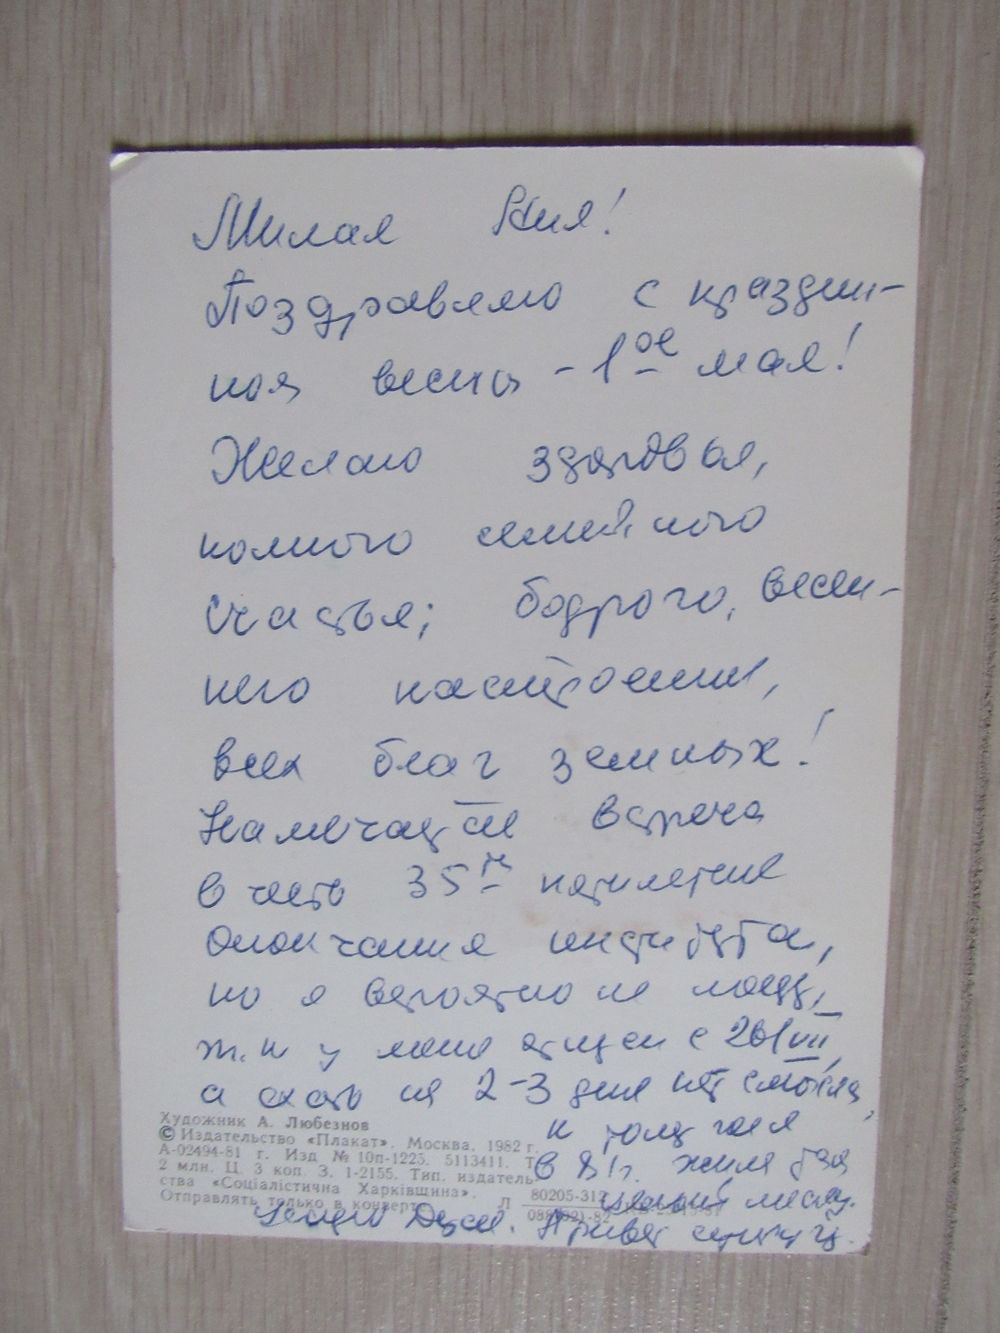 Милая Ия!
Поздравляю с праздни-
ком весны - 1ое мая!
Желаю здоровья,
полного семейного
счастья; бодрого, весен-
него настроения,
всех благ земных!
Намечается встреча
в честь 35ти-летия
окончания института,
но я вероятно не поеду,
т.к у меня отпуск с 26/VII,
а ехать на 2-3 дня нет смысла,
к тому же я
в 81г. жила там
целый месяц.
Целую Дуся. Привет супругу.
Художник А. Любезнов
© Издательство «Плакат». Москва. 1982 г.
А-02494-81 г. Изд № 10п-1225. 5113411. Т.
2 млн. Ц. 3 коп. З. 1-2155. Тип. издатель-
ства «Соціалістична Харківщина».
Отправлять только в конверте
Л 80205-312
088(02)-82